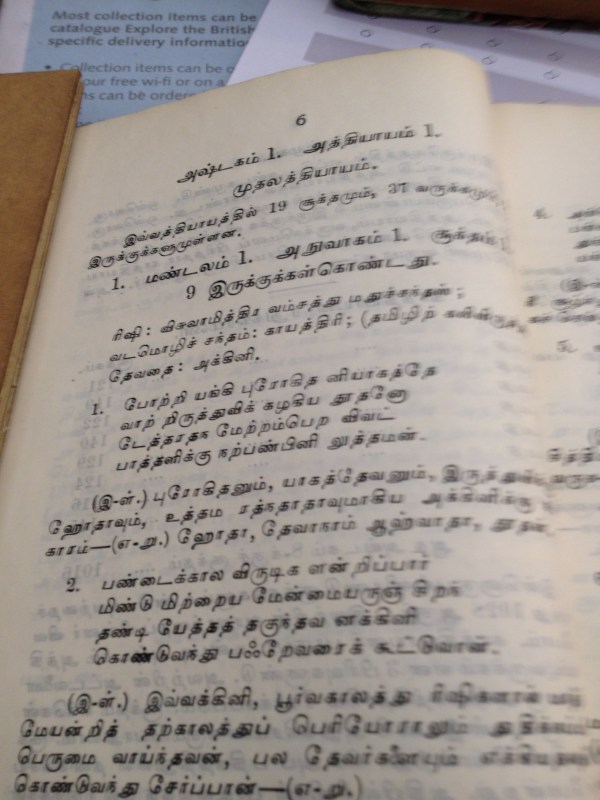 Most collection items can be
catalogue Explore the British
specific delivery information
• Collection items can be
your free wi-fi or on a
can be ordered
6
அஷ்டகம் 1. அத்தியாயம் 1.
முதலத்தியாயம்.
இவ்வத்தியாயத்தில் 19 சூக்தமும், 37 வருக்கமும்
இருக்குக்களுமுள்ளன.
1. மண்டலம் 1. அநுவாகம் 1. சூக்தம் 1
9 இருக்குக்கள்கொண்டது.
ரிஷி: விசுவாமித்திர வம்சத்து மதுச்சந்தஸ்;
வடமொழிச் சந்தம்: காயத்திரி; (தமிழிற் கலிவிருத்
தேவதை: அக்கினி.
1. போற்றி யங்கி புரோகித னியாகத்தே
வாற் றிருத்துவிக் கழகிய தூதனோ
டேத்தாதந மேற்றம்பெற விவட்
பாத்தளிக்கு நற்பண்பினி லுத்தமன்.
(இ-ள்.) புரோகிதனும், யாகத்தேவனும், இருத்துவி
ஹோதாவும், உத்தம ரத்நதாதாவுமாகிய அக்கினிக்கு
காரம்—(எ-று.) ஹோதா, தேவாநாம் ஆஹ்வாதா, தூதன்.
2. பண்டைக்கால விருடிக ளன்றிப்பார்
மிண்டு மிற்றைய மேன்மையருஞ் சிறக்
தண்டி யேத்தத் தகுந்தவ னக்கினி
கொண்டுவந்து பஃறேவரைக் கூட்டுவான்.
(இ-ள்.) இவ்வக்கினி, பூர்வகாலத்து ரிஷிகளால்
மேயன்றித் தற்காலத்துப் பெரியோராலும்
பெருமை வாய்ந்தவன், பல தேவர்களையும்
கொண்டுவந்து சேர்ப்பான்—(எ-று.)